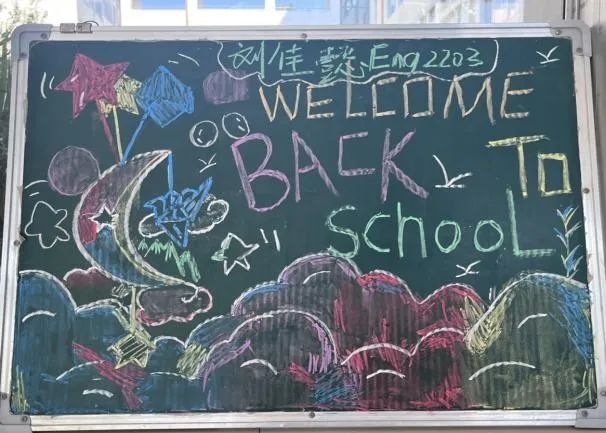 刘佳懿Eng2203
WELCOME
BACK TO
SCHOOL